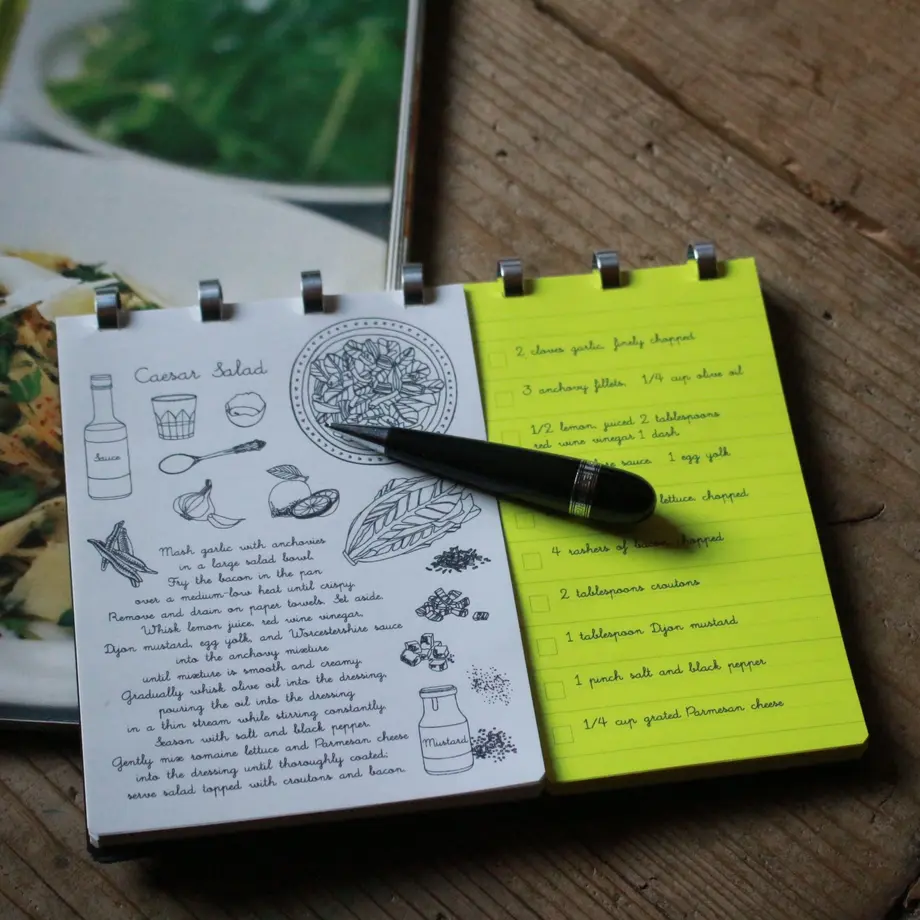 Caesar Salad
Sauce
Mash garlic with anchovies
in a large salad bowl.
Fry the bacon in the pan
over a medium-low heat until crispy.
Remove and drain on paper towels. Set aside.
Whisk lemon juice, red wine vinegar,
Dijon mustard, egg yolk, and Worcestershire sauce
into the anchovy mixture
until mixture is smooth and creamy.
Gradually whisk olive oil into the dressing,
pouring the oil into the dressing
in a thin stream while stirring constantly.
Season with salt and black pepper.
Gently mix romaine lettuce and Parmesan cheese
into the dressing until thoroughly coated;
serve salad topped with croutons and bacon.
Mustard
2 cloves garlic, finely chopped
3 anchovy fillets, 1/4 cup olive oil
1/2 lemon, juiced 2 tablespoons
red wine vinegar 1 dash
sauce 1 egg yolk
lettuce, chopped
4 rashers of bacon chopped
2 tablespoons croutons
1 tablespoon Dijon mustard
1 pinch salt and black pepper
1/4 cup grated Parmesan cheese